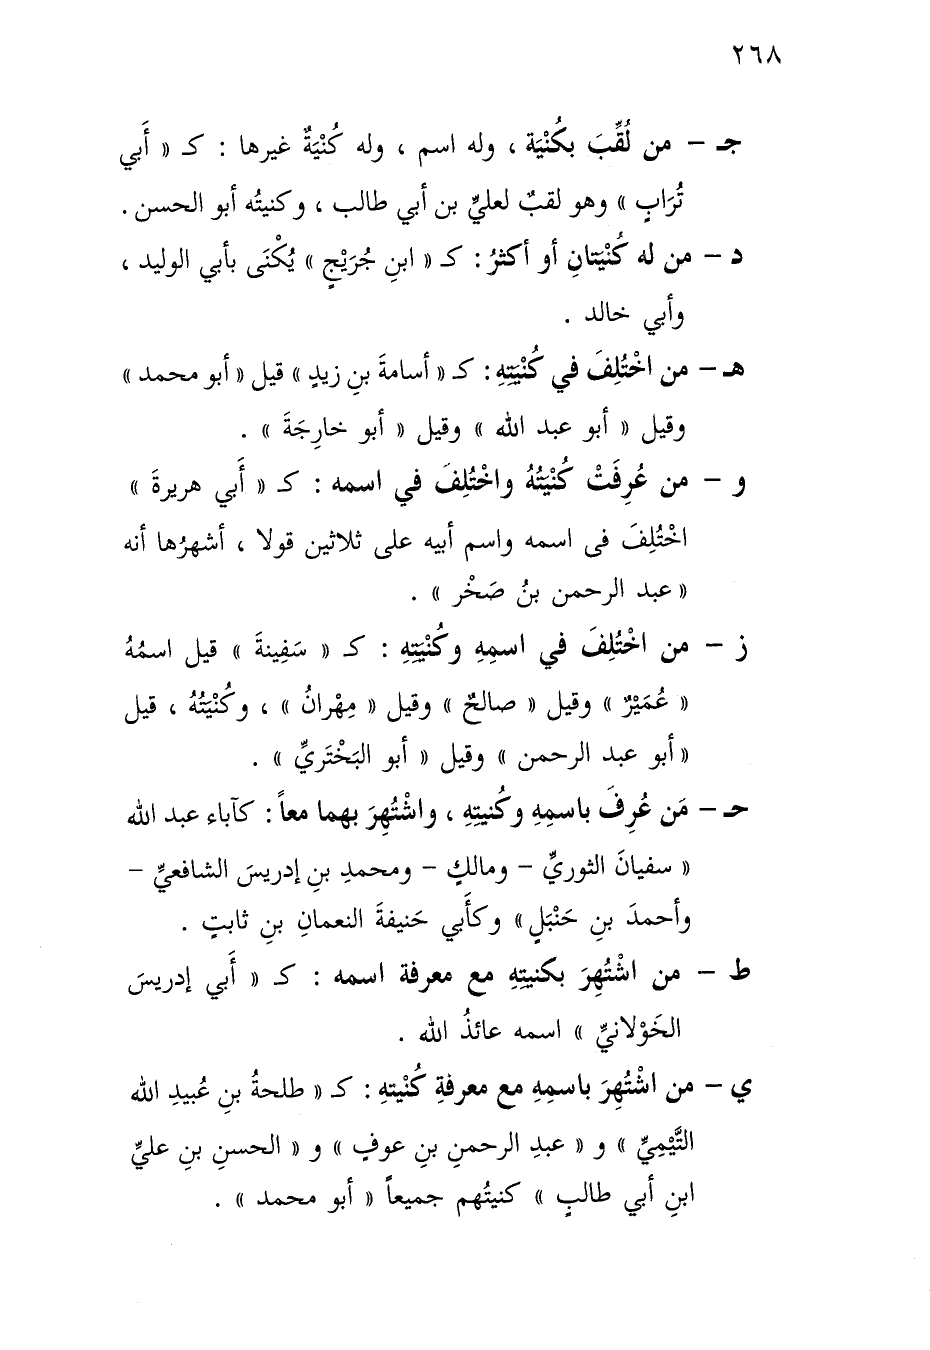 ٢٦٨
جـ – من لُقِّبَ بكُنْيَة ، وله اسم ، وله كُنْيَةٌ غيرها : كـ « أَبي
تُرَابٍ » وهو لقبٌ لعليِّ بن أبي طالب ، وكنيتُه أبو الحسن .
د – من له كُنْيَتانِ أو أكثرُ : كـ « ابنِ جُرَيْجٍ » يُكْنَى بأبي الوليد ،
وأبي خالد .
هـ – من اخْتُلِفَ في كُنْيَتِهِ : كـ « أسامةَ بنِ زيدٍ » قيل « أبو محمد »
وقيل « أبو عبد الله » وقيل « أبو خارِجَةَ » .
و – من عُرِفَتْ كُنْيَتُهُ واخْتُلِفَ في اسمه : كـ « أَبي هريرةَ »
اخْتُلِفَ فى اسمه واسم أبيه على ثلاثين قولا ، أشهرُها أنه
« عبد الرحمن بنُ صَخْر » .
ز – من اخْتُلِفَ في اسمِهِ وكُنْيَتِهِ : كـ « سَفِينةَ » قيل اسمُهُ
« عُمَيْرٌ » وقيل « صالحٌ » وقيل « مِهْرانُ » ، وكُنْيَتُهُ ، قيل
« أبو عبد الرحمن » وقيل « أبو البَخْتَريِّ » .
حـ – مَن عُرِفَ باسمِهِ وكُنيتِهِ ، واشْتُهِرَ بهما معاً : كآباء عبد الله
« سفيانَ الثوريِّ – ومالكٍ – ومحمدِ بنِ إدريسَ الشافعيِّ –
وأحمدَ بنِ حَنْبَلٍ » وكأَبي حَنيفةَ النعمانِ بنِ ثابتٍ .
ط – من اشْتُهِرَ بكنيتِهِ مع معرفة اسمه : كـ « أَبي إدريسَ
الخَوْلانيِّ » اسمه عائذُ الله .
ي – من اشْتُهِرَ باسمِهِ مع معرفةِ كُنْيتهِ : كـ « طلحةُ بنِ عُبيدِ الله
التَّيْمِيِّ » و « عبدِ الرحمنِ بنِ عوفٍ » و « الحسنِ بنِ عليِّ
ابنِ أبي طالبٍ » كنيتُهم جميعاً « أبو محمد » .